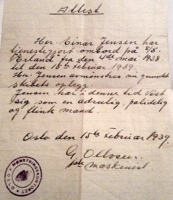 Attest
Her Einar Jensen har
tjenestegjort ombord på
fra den 4 mai 1938
til den 15 februar 1939.
Hr. Jensen avmønstres på grunn
skibets oplegg
Jensen har i denne tid vist
sig som en ædruelig pålidelig
og flink mand
Oslo den 15 februar 1939
G. Ollsen
maskinist